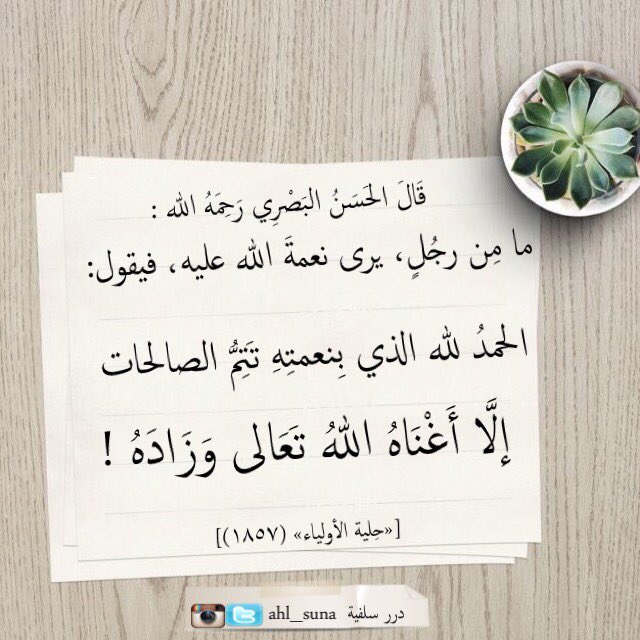 قَالَ الحَسَنُ البَصْرِي رَحِمَهُ الله :
ما مِن رجُلٍ، يرى نعمةَ الله عليه، فيقول:
الحمدُ لله الذي بِنعمتِهِ تَتِمُّ الصالحات
إِلَّا أَغْنَاهُ اللهُ تَعَالى وَزَادَهُ !
[«حِلية الأولياء» (١٨٥٧)]
درر سلفية ahl_suna